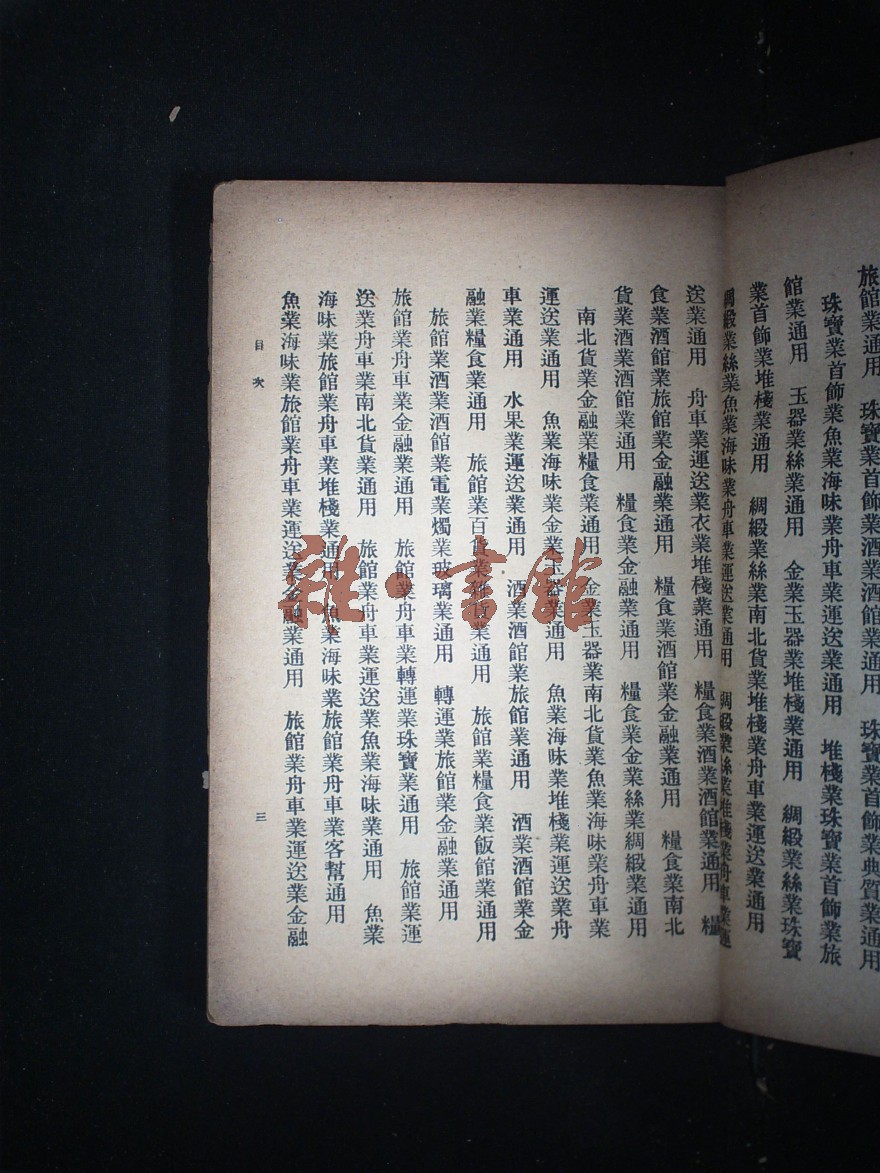 旅館業通用　珠寶業首飾業酒業酒館業通用　珠寶業首飾業典質業通用
珠寶業首飾業魚業海味業舟車業運送業通用　堆棧業珠寶業首飾業旅
館業通用　玉器業絲業通用　金業玉器業堆棧業通用　綢緞業絲業珠寶
業首飾業堆棧業通用　綢緞業絲業南北貨業堆棧業舟車業運送業通用
綢緞業絲業魚業海味業舟車業運送業通用　綢緞業絲業堆棧業舟車業運
送業通用　舟車業運送業衣業堆棧業通用　糧食業酒業酒館業通用　糧
食業酒館業旅館業金融業通用　糧食業酒館業金融業通用　糧食業南北
貨業酒業酒館業通用　糧食業金融業通用　糧食業金業絲業綢緞業通用
南北貨業金融業糧食業通用　金業玉器業南北貨業魚業海味業舟車業
運送業通用　魚業海味業金業玉器業通用　魚業海味業堆棧業運送業舟
車業通用　水果業運送業通用　酒業酒館業旅館業通用　酒業酒館業金
融業糧食業通用　旅館業百貨業雜貨業通用　旅館業糧食業飯館業通用
旅館業酒業酒館業電業燭業玻璃業通用　轉運業旅館業金融業通用
旅館業舟車業金融業通用　旅館業舟車業轉運業珠寶業通用　旅館業運
送業舟車業南北貨業通用　旅館業舟車業運送業魚業海味業通用　魚業
海味業旅館業舟車業堆棧業通用　魚業海味業旅館業舟車業客幫通用
魚業海味業旅館業舟車業運送業金融業通用　旅館業舟車業運送業金融
目次
三
雜·書館